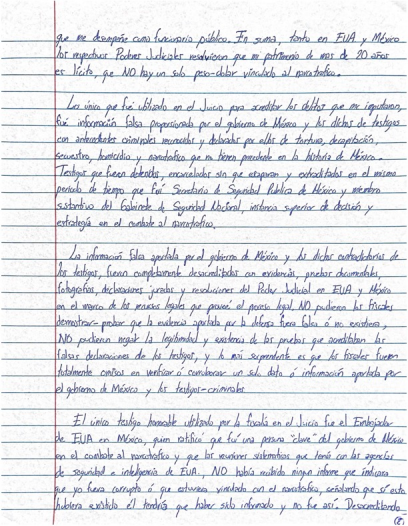 que me desempeñe como funcionario público. En suma, tanto en EUA y México
los respectivos Poderes Judiciales resolvieron que mi patrimonio de mas de 20 años
es lícito, que NO hay un solo peso-dolar vinculado al narcotrafico.
Lo único que fué utilizado en el Juicio para acreditar los delitos que me imputaron,
fué información falsa proporcionada por el gobierno de México y los dichos de testigos
con antecedentes criminales reconocidos y declarados por ellos de tortura, decapitación,
secuestro, homicidio y narcotrafico que no tienen precedente en la historia de México.
Testigos que fueron detenidos, encarcelados sin que escaparan y extraditados en el mismo
periodo de tiempo que fuí Secretario de Seguridad Publica de México y miembro
sustantivo del Gabinete de Seguridad Nacional, instancia superior de decisión y
estrategía en el combate al narcotrafico.
La información falsa aportada por el gobierno de México y los dichos contradictorios de
los testigos, fueron completamente desacreditados con evidencias, pruebas documentales,
fotografías, declaraciones juradas y resoluciones del Poder Judicial en EUA y México
en el marco de los procesos legales que provee el proceso legal, NO pudieron los fiscales
demostrar-probar que la evidencia aportada por la defensa fuera falsa ó no existiera,
NO pudieron negar la legitimidad y existencia de las pruebas que acreditaban las
falsas declaraciones de los testigos, y lo más sorprendente es que los fiscales fueron
totalmente omisos en verificar ó corroborar un solo dato ó información aportada por
el gobierno de México y los testigos-criminales
El único testigo honorable utilizado por la fiscalía en el Juicio fue el Embajador
de EUA en México, quien ratificó que fuí una persona "clave" del gobierno de México
en el combate al narcotrafico y que las reuniones sistematicas que tenía con las agencias
de seguridad e inteligencia de EUA, NO había recibido ningún informe que indicara
que yo fuera corrupto ó que estuviera vinculado con el narcotrafico, señalando que si esto
hubiera existido él tendría que haber sido informado y no fue así. Desacreditando